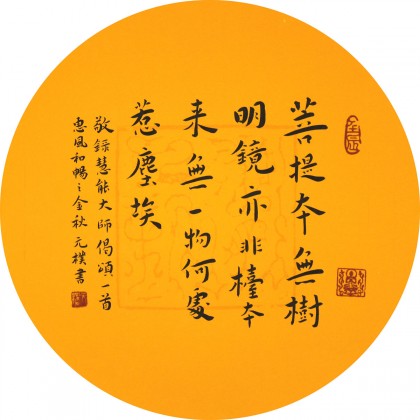 菩提本無樹
明鏡亦非檯本
来無一物何處
惹塵埃
敬錄慧能大师偈頌一首
惠風和暢之金秋元樸書